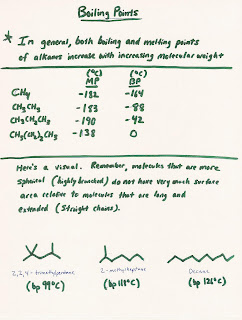 Boiling Points
* In general, both boiling and melting points
of alkanes increase with increasing molecular weight
(°C) (°C)
MP BP
CH4 -182 -164
CH3CH3 -183 -88
CH3CH2CH3 -190 -42
CH3(CH2)2CH3 -138 0
Here's a visual. Remember, molecules that are more
spherical (highly branched) do not have very much surface
area relative to molecules that are long and
extended (straight chains).
2,2,4-trimethylpentane 2-methylheptane Octane
(bp 99°C) (bp 118°C) (bp 126°C)